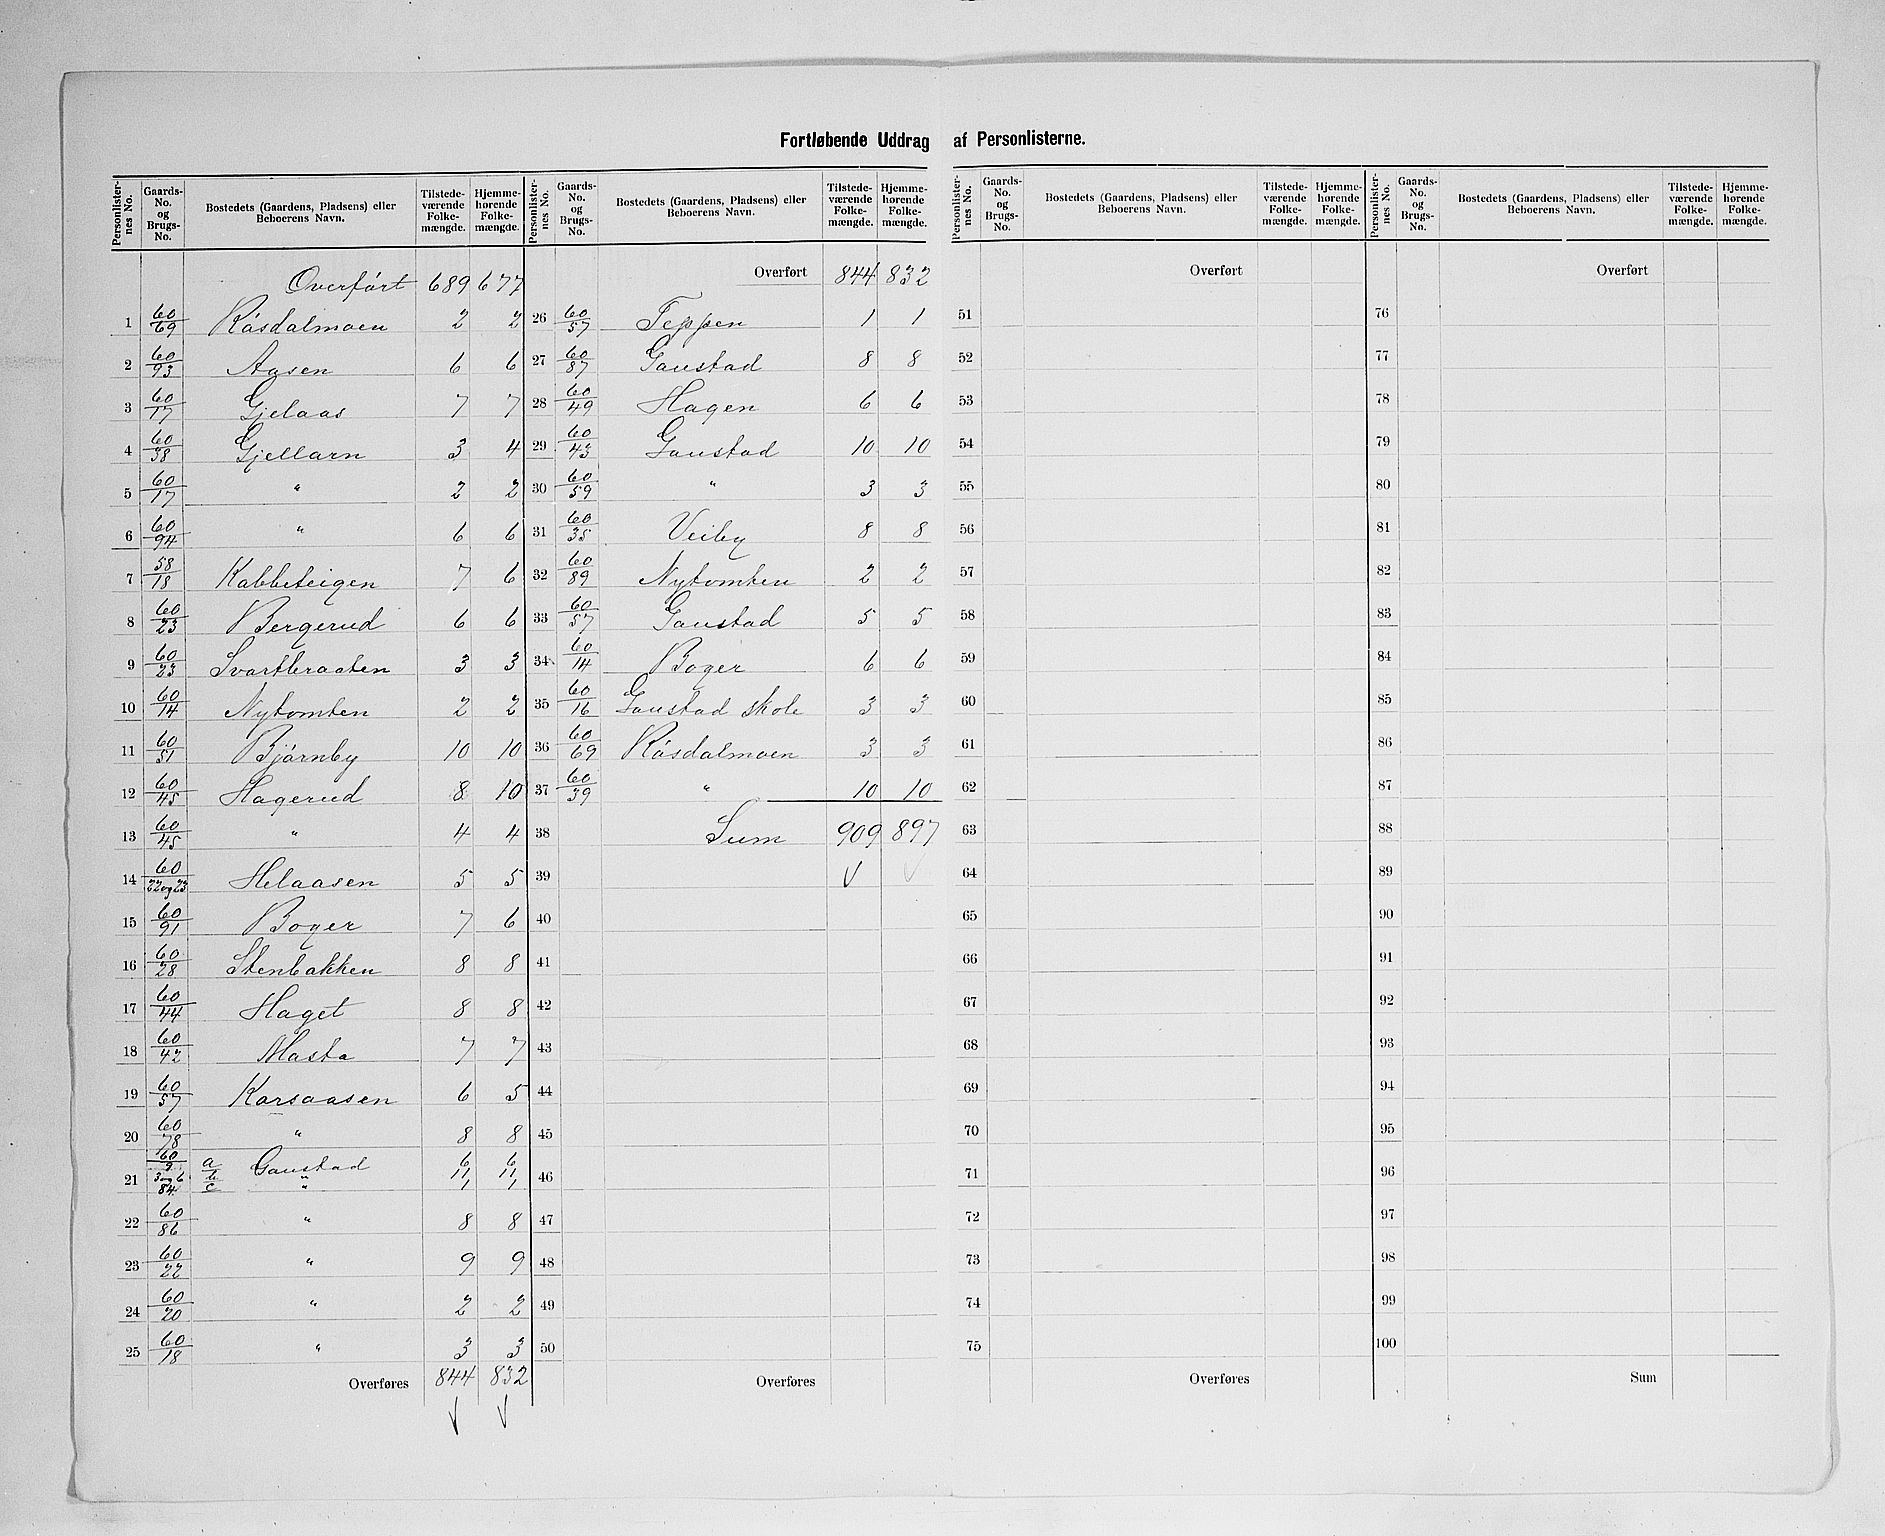 Fortløbende Uddrag af Personlisterne.
Personlister-nes No. | Gaards-No. og Brugs-No. | Bostedets (Gaardens, Pladsens) eller Beboerens Navn. | Tilstede-værende Folke-mængde. | Hjemme-hørende Folke-mængde.
Overført 689 677
1 60/69 Råsdalmoen 2 2
2 60/93 Aasen 6 6
3 60/17 Gjelaas 7 7
4 60/38 Gjellarn 3 4
5 60/17 " 2 2
6 60/94 " 6 6
7 58/18 Kabbeteigen 7 6
8 60/23 Bergerud 6 6
9 60/23 Svartbraaten 3 3
10 60/14 Nytomten 2 2
11 60/51 Bjørnby 10 10
12 60/45 Hagerud 8 10
13 60/45 " 4 4
14 60/22og23 Helaasen 5 5
15 60/91 Boger 7 6
16 60/28 Stenbakken 8 8
17 60/44 Haget 8 8
18 60/42 Masta 7 7
19 60/57 Korsaasen 6 5
20 60/78 " 8 8
21 60/9 a Gaustad 6 6
3og6 b " 11 11
84 c " 1 1
22 60/86 " 8 8
23 60/22 " 9 9
24 60/20 " 2 2
25 60/18 " 3 3
Overføres 844 832
Personlister-nes No. | Gaards-No. og Brugs-No. | Bostedets (Gaardens, Pladsens) eller Beboerens Navn. | Tilstede-værende Folke-mængde. | Hjemme-hørende Folke-mængde.
Overført 844 832
26 60/57 Teppen 1 1
27 60/87 Gaustad 8 8
28 60/49 Hagen 6 6
29 60/43 Gaustad 10 10
30 60/59 " 3 3
31 60/35 Veiby 8 8
32 60/89 Nytomten 2 2
33 60/57 Gaustad 5 5
34 60/14 Boger 6 6
35 60/16 Gaustad skole 3 3
36 60/69 Råsdalmoen 3 3
37 60/39 " 10 10
38 Sum 909 897
39
40
41
42
43
44
45
46
47
48
49
50
Overføres
Personlister-nes No. | Gaards-No. og Brugs-No. | Bostedets (Gaardens, Pladsens) eller Beboerens Navn. | Tilstede-værende Folke-mængde. | Hjemme-hørende Folke-mængde.
Overført
51
52
53
54
55
56
57
58
59
60
61
62
63
64
65
66
67
68
69
70
71
72
73
74
75
Overføres
Personlister-nes No. | Gaards-No. og Brugs-No. | Bostedets (Gaardens, Pladsens) eller Beboerens Navn. | Tilstede-værende Folke-mængde. | Hjemme-hørende Folke-mængde.
Overført
76
77
78
79
80
81
82
83
84
85
86
87
88
89
90
91
92
93
94
95
96
97
98
99
100
Sum